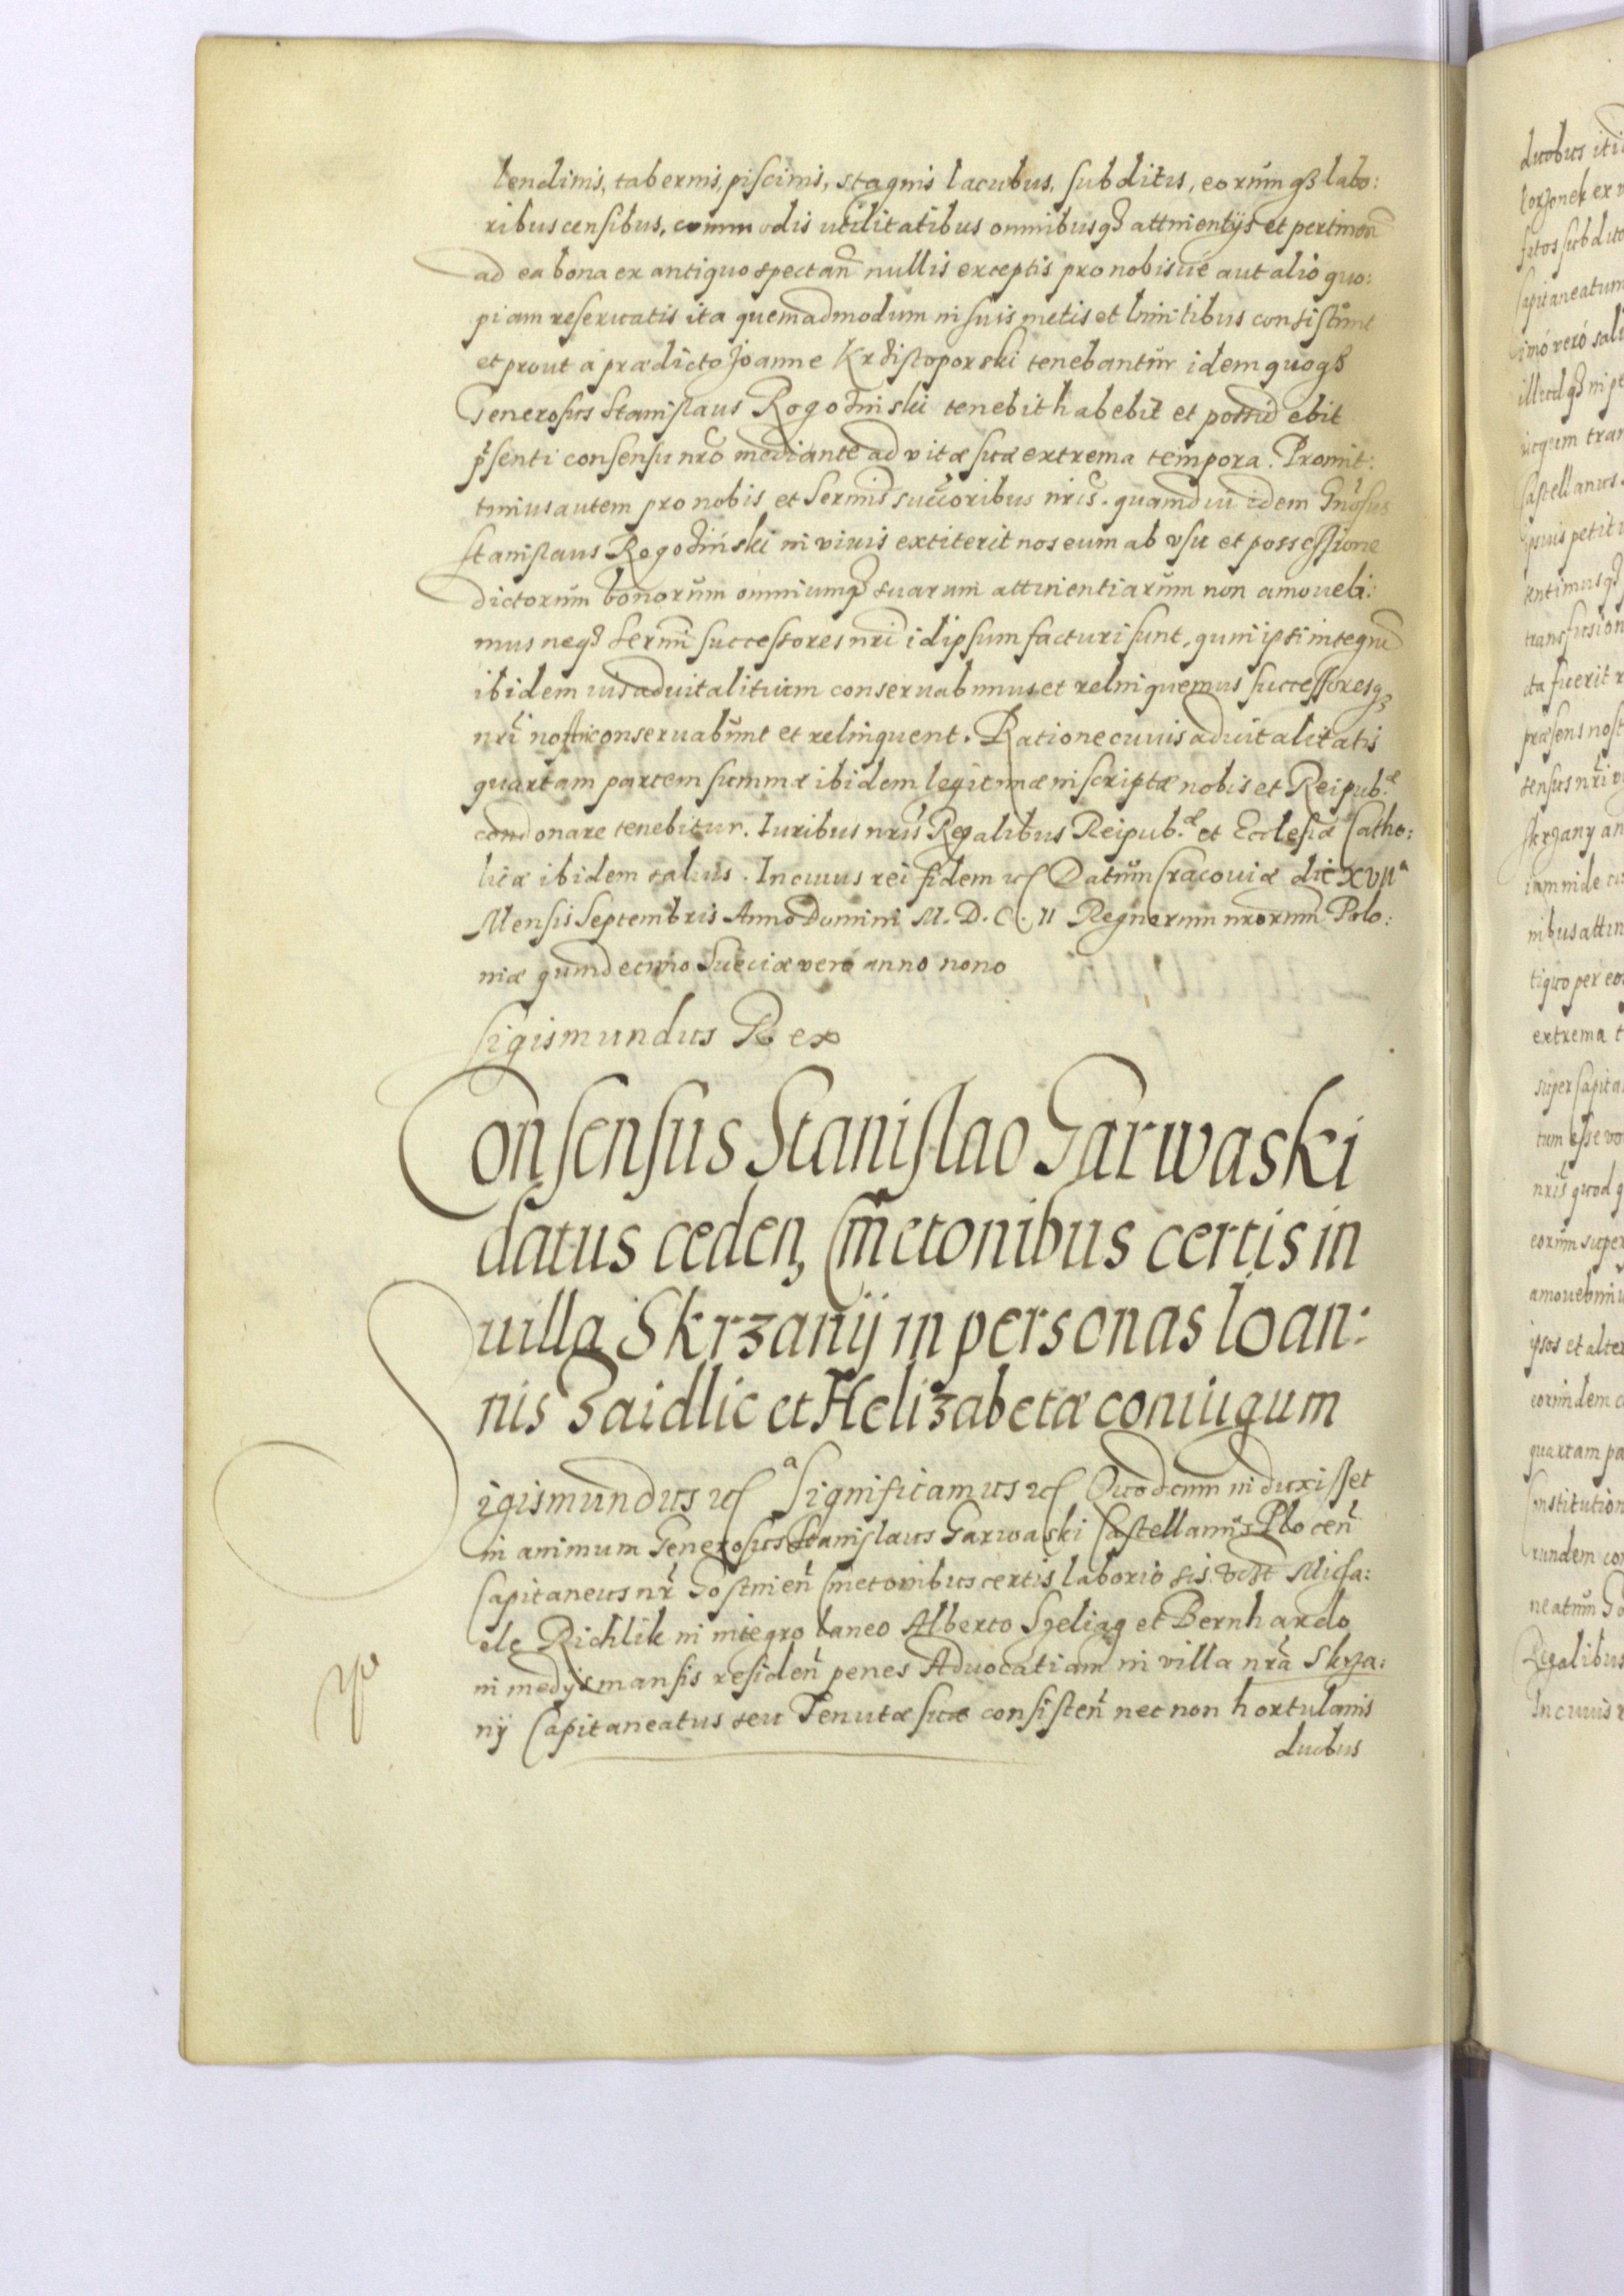 lendinis, tabernis, piscinis, stagnis lacubus, subditis, eorumqȝ labo:
ribus censibus, commodis utilitatibus omnibusqȝ attinentijs et pertinen̄
ad ea bona ex antiquo spectan̄ nullis exceptis pro nobisue aut alio quo:
piam reseruatis ita quemadmodum in suis metis et limitibus consistunt
et prout a prædicto Joanne Krzistoporski tenebantur idem quoqȝ
Generosus Stanislaus Rogozinski tenebit habebit et possidebit
p̄senti consensu nrō mediante ad vitæ suæ extrema tempora. Promit:
timus autem pro nobis et Sermis succoribus nris. quamdiu idem Gnosus
Stanislaus Rogoziński in viuis extiterit nos eum ab vsu et possessione
dictorum bonorum omniumqȝ suarum attinentiarum non amouebi:
mus neqȝ Sermi successores nri id ipsum facturi sunt, quin ipsi integrū
ibidem ius aduitalitium conseruabimus et relinquemus successoresqȝ
nri nostri conseruabunt et relinquent. Ratione cuius aduitalitatis
quartam partem summæ ibidem legitimæ inscriptæ nobis et Reipub.æ
condonare tenebitur. Iuribus nris Regalibus Reipub.æ et Ecclesiæ Catho:
licæ ibidem saluis. In cuius rei fidem etc Datum Cracouiæ die XVIIa
Mensis Septembris Anno Domini M. D. C. II Regnorum nrorum Polo:
niæ quindecimo Sueciæ vero anno nono
Sigismundus Rex
Consensus Stanislao Garwaski
datus ceden, Cmetonibus certis in
uilla Skrzanij in personas Ioan:
nis Zaidlic et Helizabetæ coniugum
Sigismundus etc Significamus etc Quod cum induxisset
in animum Generosus Stanislaus Garwaski Castellanus Plocen̄
Capitaneus nr̄ Gostinen̄ Cmetonibus certis laboriosis vidlt Micha:
ele Richlik in integro laneo Alberto Szeliag et Bernhardo
in medijs mansis residen̄ penes Aduocatiam in villa nrā Skrza:
nij Capitaneatus seu Tenutæ suæ consisten̄ nec non hortulanis
duobus